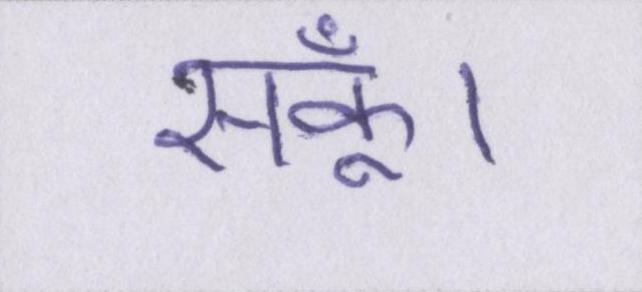 सकूँ।